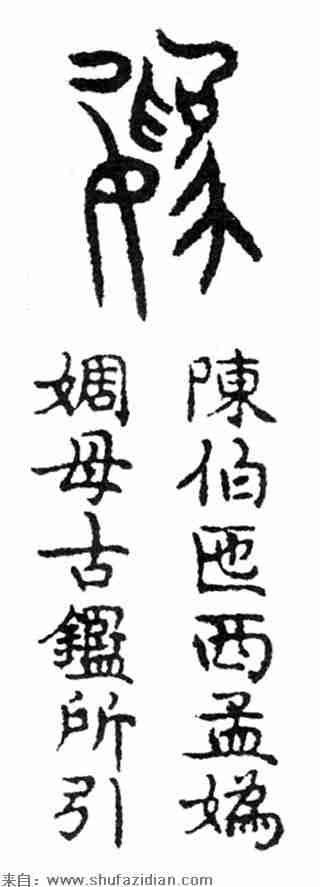 媯
陳伯匜西孟媯
婤母古鑑所引
来自：www.shufazidian.com